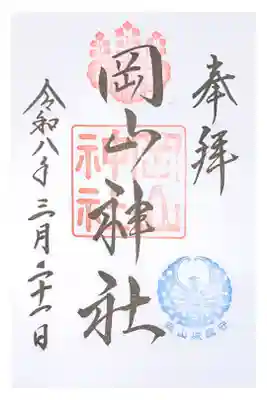 奉拝
岡山神社
岡山
神社
令和八年三月二十一日